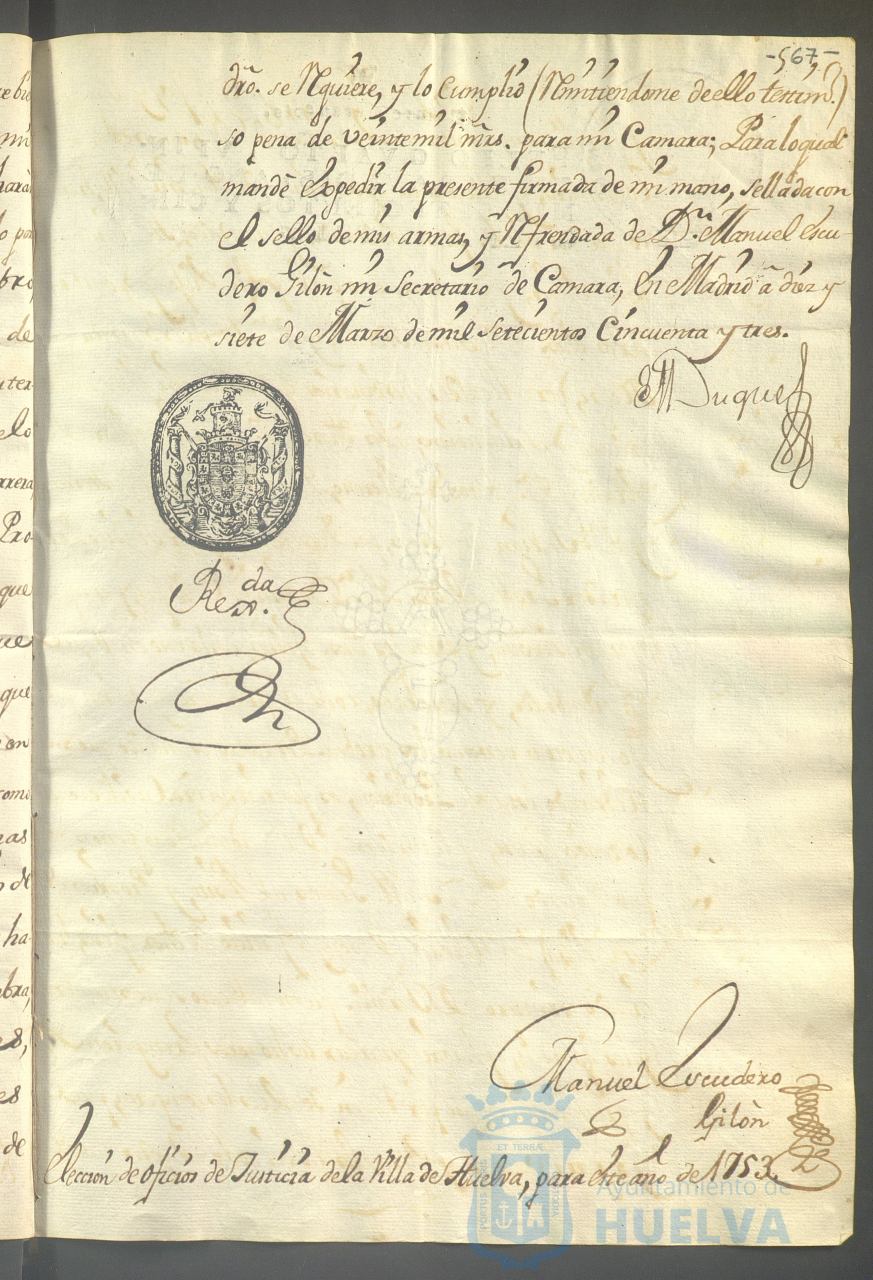 -567-
dro. se Requiere, y lo cumplió (Remitiendome de ello testim.o)
so pena de veinte mil mrs. para mi Camara; Para lo qual
mandè expedir la presente firmada de mi mano, sellada con
el sello de mis armas, y Refrendada de Dn. Manuel Escu-
dero Gilòn mi Secretario de Camara, en Madrid à diez y
siete de Marzo de mil Setecientos Cincuenta y tres.
El Duque
Rexda.
Manuel Escudero
Gilòn
Elección de oficios de Justicia de la Villa de Huelva, para este año de 1753.
ET TERRÆ
PORTUS
Ayuntamiento de
HUELVA